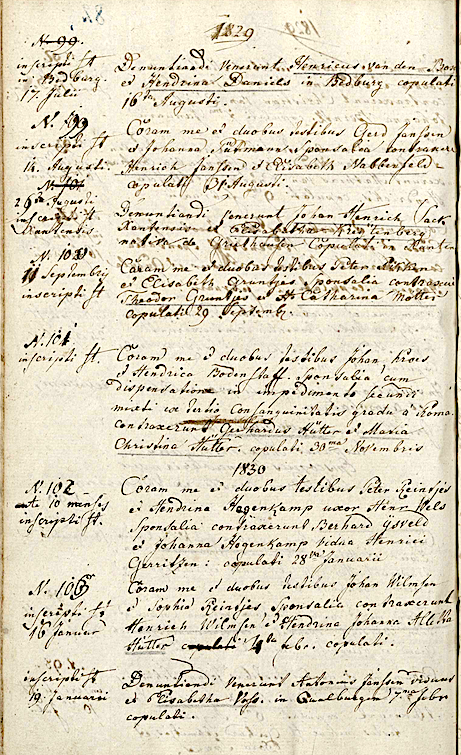 1829
N. 99.
inscripti st
in Bedburg
17 Julii
Denuntiandi venerunt Henricus van den Bosc
et Hendrina Daniels in Bedburg copulati
16ta Augusti.
N. 99
inscripti st
14. Augusti.
Coram me et duobus testibus Gerd Janssen
et Johanna sponsalia contraxere
Henrich Janssen et Elisabeth Nabbefeld
copulati 31 Augusti.
N. 101
26ta Augusti
inscripti st
Xantensis
Denuntiandi venerunt Johan Henrich Sack
Xantensis et Elisabetha
nativa de Griethausen copulati in Xanten
N. 100
11 Septembris
inscripti st
Coram me et duobus testibus Peter
et Elisabeth Gruntjes sponsalia contraxere
Theodor Gruntjes et Catharina Molter
copulati 29 Septemb.
N. 101
inscripti st.
Coram me et duobus testibus Johan
et Hendrica Bodenstaff sponsalia cum
dispensatione in impedimento secundi
mixti ex tertio consanguinitatis gradu a Roma
contraxerunt Gerhardus Hütter et Maria
Christina Hütter. copulati 30ma Novembris
1830
N. 102
ante 10 menses
inscripti st.
Coram me et duobus testibus Peter Reintjes
et Hendrina Hagenkamp uxor Henr Wels
Sponsalia contraxerunt Berhard
et Johanna Hogenkamp vidua Henrici
Gerritzen: copulati 28ta Januarii
N. 103
inscripti st
16 Januar
Coram me et duobus testibus Johan Wilmsen
et Sophia Reintjes Sponsalia contraxerunt
Henrich Wilmsen et Hendrina Johanna Aletha
Hütter copulati 4ta febr. copulati.
inscripti st
19. Januarii
Denuntiandi venerunt Antonius Janssen viduus
et Elisabetha Voss. in Qualburgen 7ma febr
copulati.